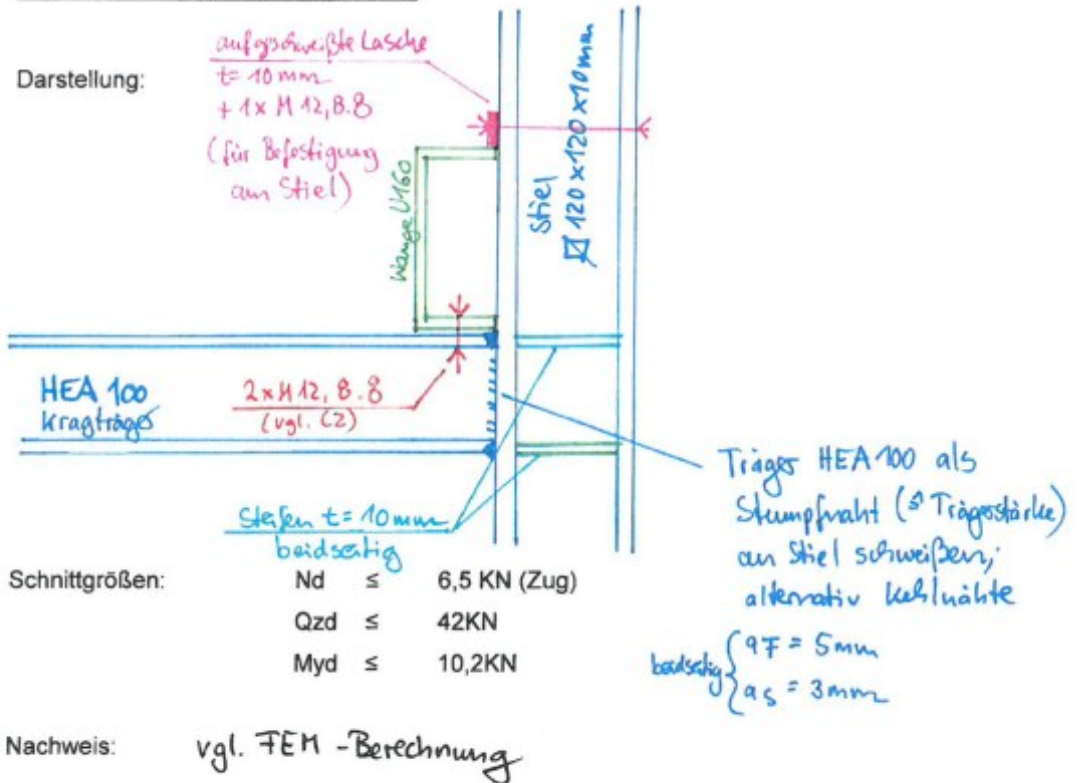 Darstellung:
aufgschweißte Lasche
t= 10 mm
+ 1x M 12, 8.8
(für Befestigung
am Stiel)
Wange U160
Stiel
120 x 120 x 10 mm
HEA 100
Kragträger
2x M 12, 8.8
(vgl. C2)
Steifen t= 10 mm
beidseitig
Träger HEA 100 als
Stumpfnaht (≙ Trägerstärke)
an Stiel schweißen;
alternativ Kehlnähte
beidseitig
aF = 5mm
as = 3mm
Schnittgrößen:
Nd ≤ 6,5 KN (Zug)
Qzd ≤ 42KN
Myd ≤ 10,2KN
Nachweis: vgl. FEM - Berechnung